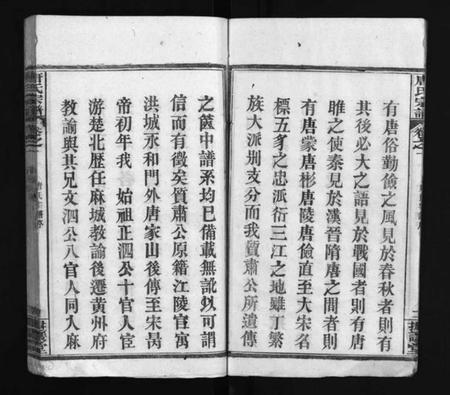 唐氏宗譜
卷之一
有唐俗勤儉之風見於春秋者則有
其後必大之語見於戰國者則有唐
雎之使秦見於漢晉隋唐之間者則
有唐蒙唐彬唐陵唐儉直至大宋名
標五豸之忠派衍三江之地雖丁繁
族大派別支分而我質肅公所遺傳
之篋中譜系均已備載無訛以可謂
信而有徵矣質肅公原籍江陵官寓
洪城永和門外唐家山後傳至宋昺
帝初年我 始祖正泗公十官人宦
游楚北歷任麻城教諭後遷黄州府
教諭與其兄文泗公八官人同入麻
唐氏宗譜
卷之一